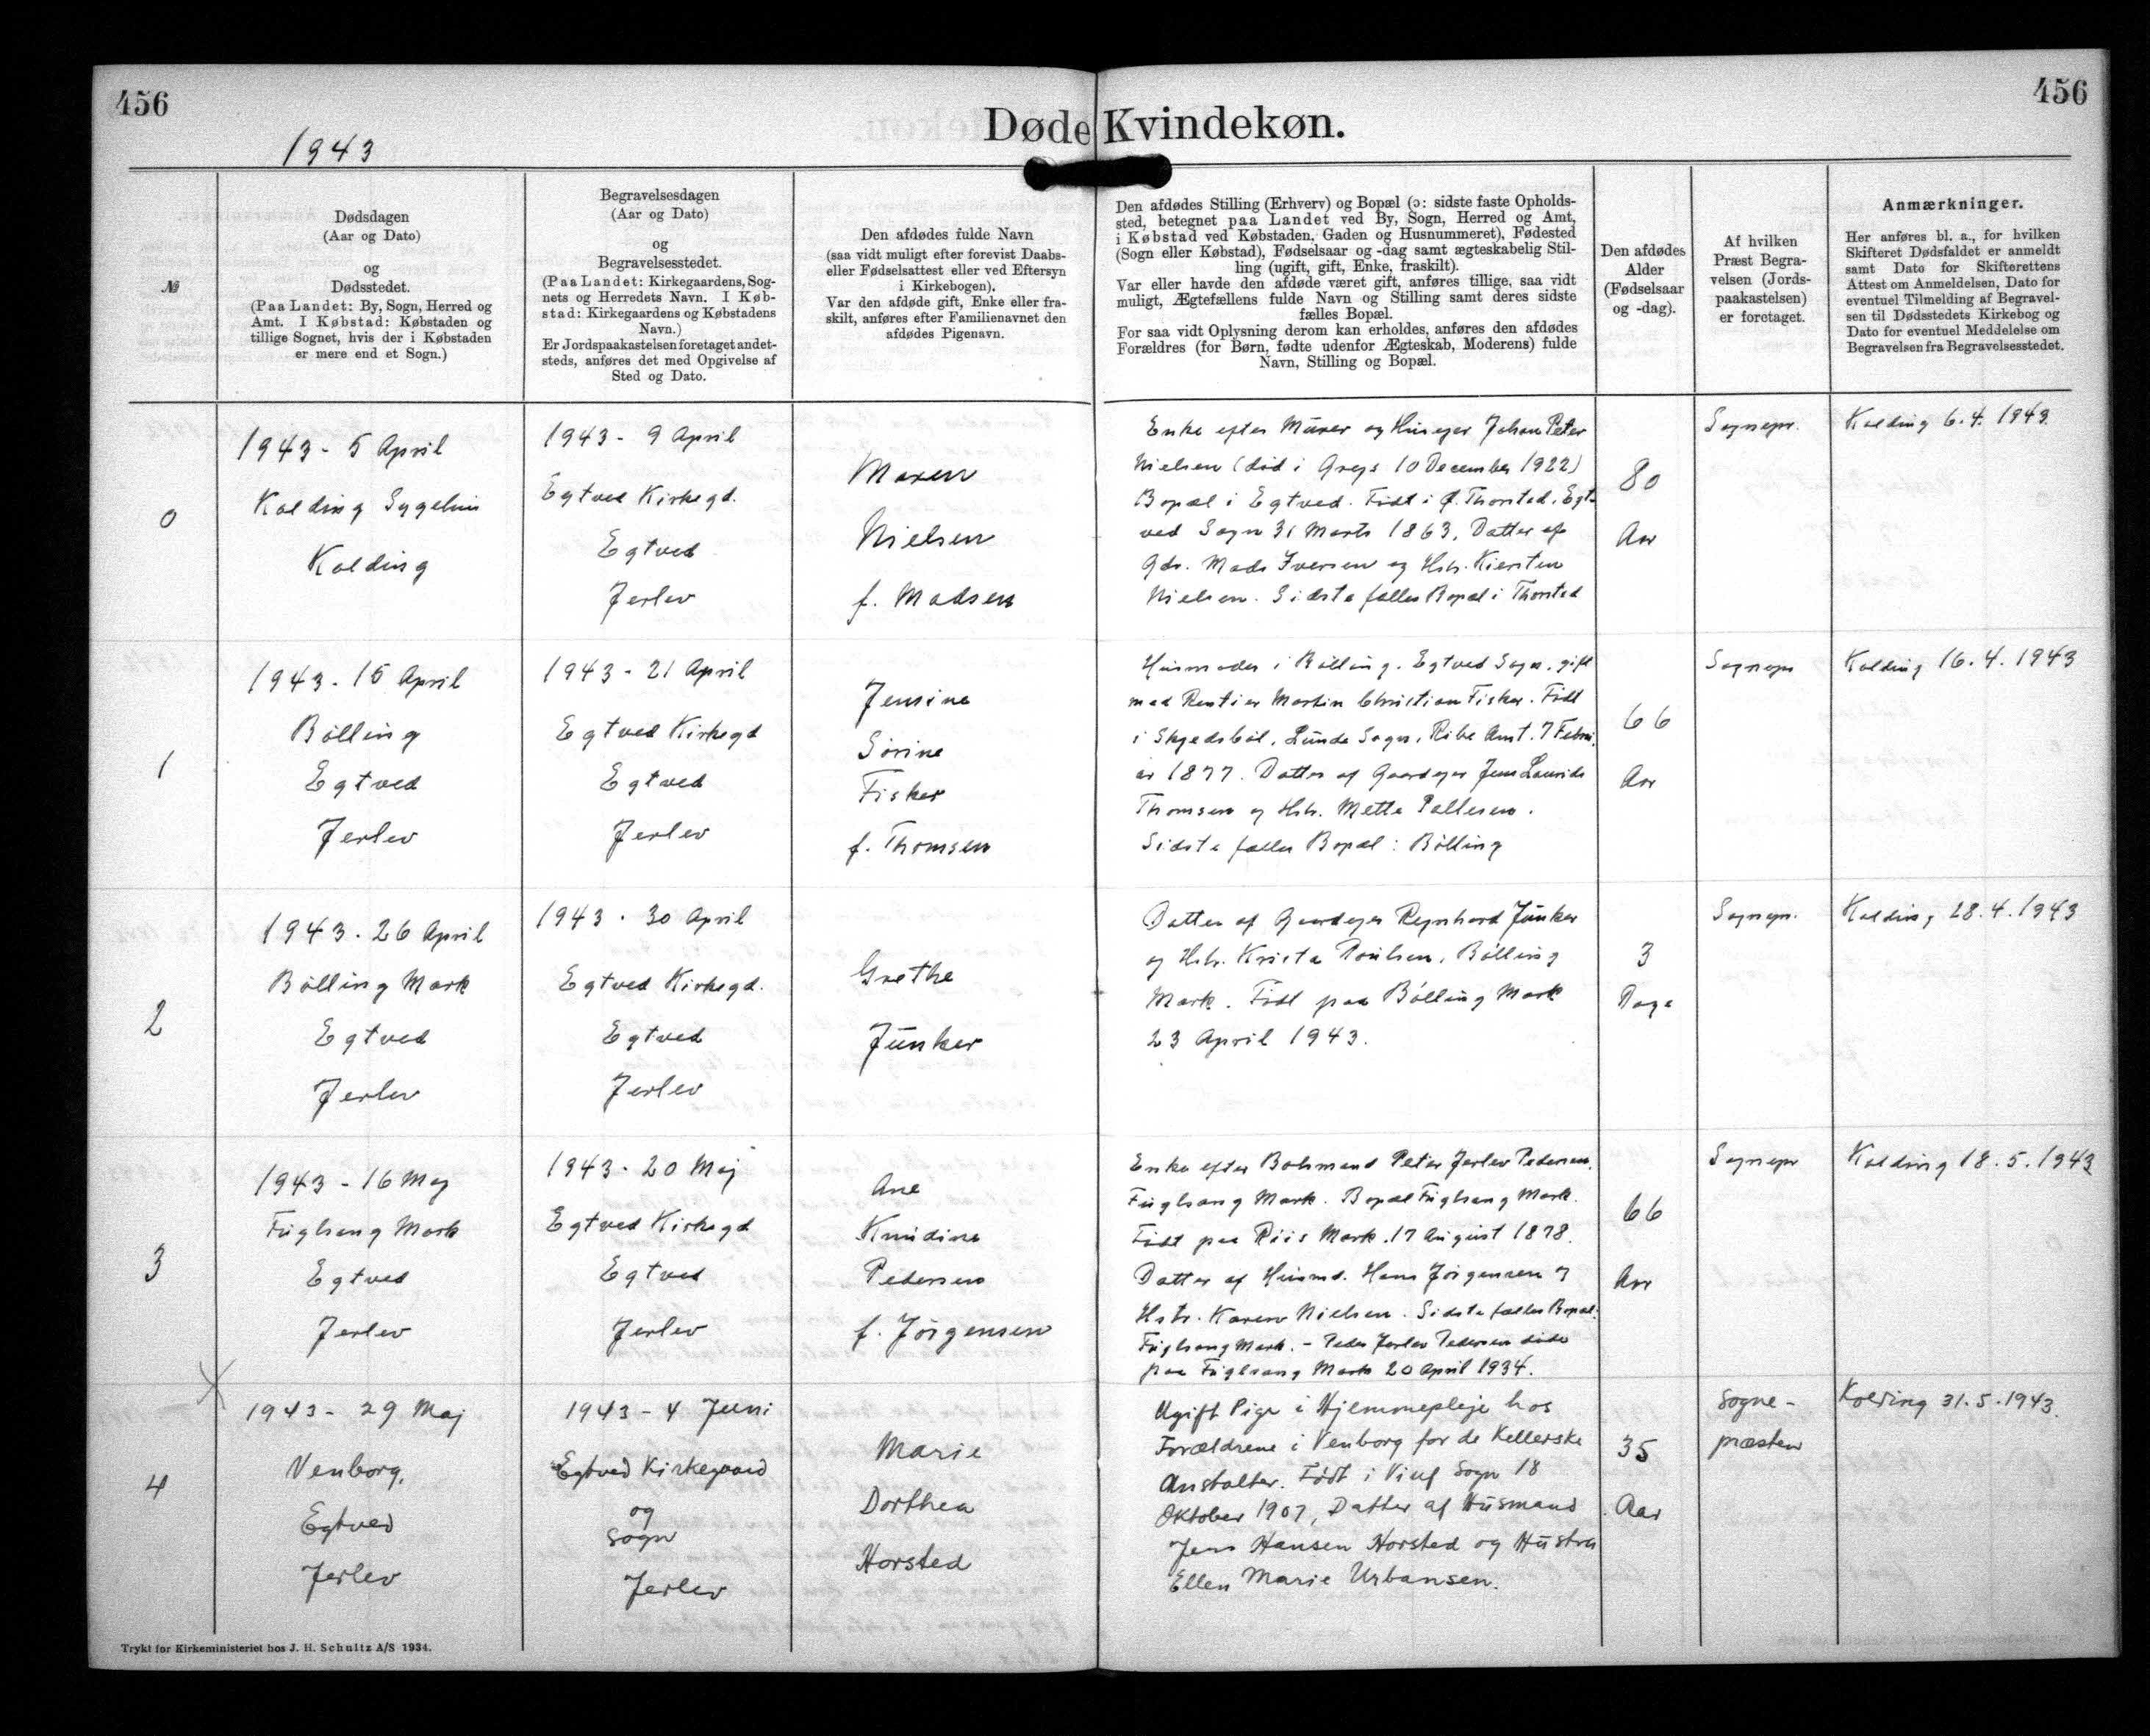 456
456
Døde Kvindekøn.
1943
№
Dødsdagen
(Aar og Dato)
og
Dødsstedet.
(Paa Landet: By, Sogn, Herred og
Amt. I Købstad: Købstaden og
tillige Sognet, hvis der i Købstaden
er mere end et Sogn.)
Begravelsesdagen
(Aar og Dato)
og
Begravelsesstedet.
(Paa Landet: Kirkegaardens, Sog-
nets og Herredets Navn. I Køb-
stad: Kirkegaardens og Købstadens
Navn.)
Er Jordspaakastelsen foretaget andet-
steds, anføres det med Opgivelse af
Sted og Dato.
Den afdødes fulde Navn
(saa vidt muligt efter forevist Daabs-
eller Fødselsattest eller ved Eftersyn
i Kirkebogen).
Var den afdøde gift, Enke eller fra-
skilt, anføres efter Familienavnet den
afdødes Pigenavn.
Den afdødes Stilling (Erhverv) og Bopæl (ɔ: sidste faste Opholds-
sted, betegnet paa Landet ved By, Sogn, Herred og Amt,
i Købstad ved Købstaden, Gaden og Husnummeret), Fødested
(Sogn eller Købstad), Fødselsaar og -dag samt ægteskabelig Stil-
ling (ugift, gift, Enke, fraskilt).
Var eller havde den afdøde været gift, anføres tillige, saa vidt
muligt, Ægtefællens fulde Navn og Stilling samt deres sidste
fælles Bopæl.
For saa vidt Oplysning derom kan erholdes, anføres den afdødes
Forældres (for Børn, fødte udenfor Ægteskab, Moderens) fulde
Navn, Stilling og Bopæl.
Den afdødes
Alder
(Fødselsaar
og -dag).
Af hvilken
Præst Begra-
velsen (Jords-
paakastelsen)
er foretaget.
Anmærkninger.
Her anføres bl. a., for hvilken
Skifteret Dødsfaldet er anmeldt
samt Dato for Skifterettens
Attest om Anmeldelsen, Dato for
eventuel Tilmelding af Begravel-
sen til Dødsstedets Kirkebog og
Dato for eventuel Meddelelse om
Begravelsen fra Begravelsesstedet.
0
1943 - 5 April
Kolding Sygehus
Kolding
1943 - 9 April
Egtved Kirkegd.
Egtved
Jerlev
Maren
Nielsen
f. Madsen
Enke efter Murer og Husejer Johan Peter
Nielsen (død i Grejs 10 December 1922)
Bopæl i Egtved. Født i Ø. Thorsted, Egt-
ved Sogn 31 Marts 1863, Datter af
Gdr. Mads Iversen og Hstr. Kiersten
Nielsen. Sidste fælles Bopæl i Thorsted
80
Aar
Sognepr.
Kolding 6.4. 1943
1
1943 - 15 April
Bølling
Egtved
Jerlev
1943 - 21 April
Egtved Kirkegd
Egtved
Jerlev
Jensine
Sørine
Fisker
f. Thomsen
Husmoder i Bølling, Egtved Sogn, gift
med Rentier Martin Christian Fisker. Født
i Skjedsbøl, Lunde Sogn, Ribe Amt. 7 Febru-
ar 1877. Datter af Gaardejer Jens Laurids
Thomsen og Hstr. Mette Pallesen.
Sidste fælles Bopæl: Bølling
66
Aar
Sognepr
Kolding 16.4.1943
2
1943 - 26 April
Bølling Mark
Egtved
Jerlev
1943 - 30 April
Egtved Kirkegd.
Egtved
Jerlev
Grethe
Junker
Datter af Gaardejer Reynhard Junker
og Hstr. Krista Poulsen, Bølling
Mark. Født paa Bølling Mark
23 April 1943.
3
Dage
Sognepr.
Kolding 28.4.1943
3
1943 - 16 Maj
Fuglsang Mark
Egtved
Jerlev
1943 - 20 Maj
Egtved Kirkegd
Egtved
Jerlev
Ane
Knudine
Pedersen
f. Jørgensen
Enke efter Bolsmand Peter Jerlev Pedersen,
Fuglsang Mark. Bopæl Fuglsang Mark.
Født paa Riis Mark. 17 August 1878.
Datter af Husmd. Hans Jørgensen og
Hstr. Karen Nielsen. Sidste fælles Bopæl:
Fuglsang Mark. - Peder Jerlev Pedersen døde
paa Fuglsang Mark 20 April 1934.
66
Aar
Sognepr
Kolding 18.5.1943
4
1943 - 29 Maj
Venborg,
Egtved
Jerlev
1943 - 4 Juni
Egtved Kirkegaard
og
Sogn
Jerlev
Marie
Dorthea
Horsted
Ugift Pige i Hjemmepleje hos
Forældrene i Venborg for de Kellerske
Anstalter. Født i Viuf Sogn 18
Oktober 1907, Datter af Husmand
Jens Hansen Horsted og Hustru
Ellen Marie Urbansen.
35
Aar
Sogne-
præsten
Kolding 31.5.1943.
Trykt for Kirkeministeriet hos J. H. Schultz A/S 1934.